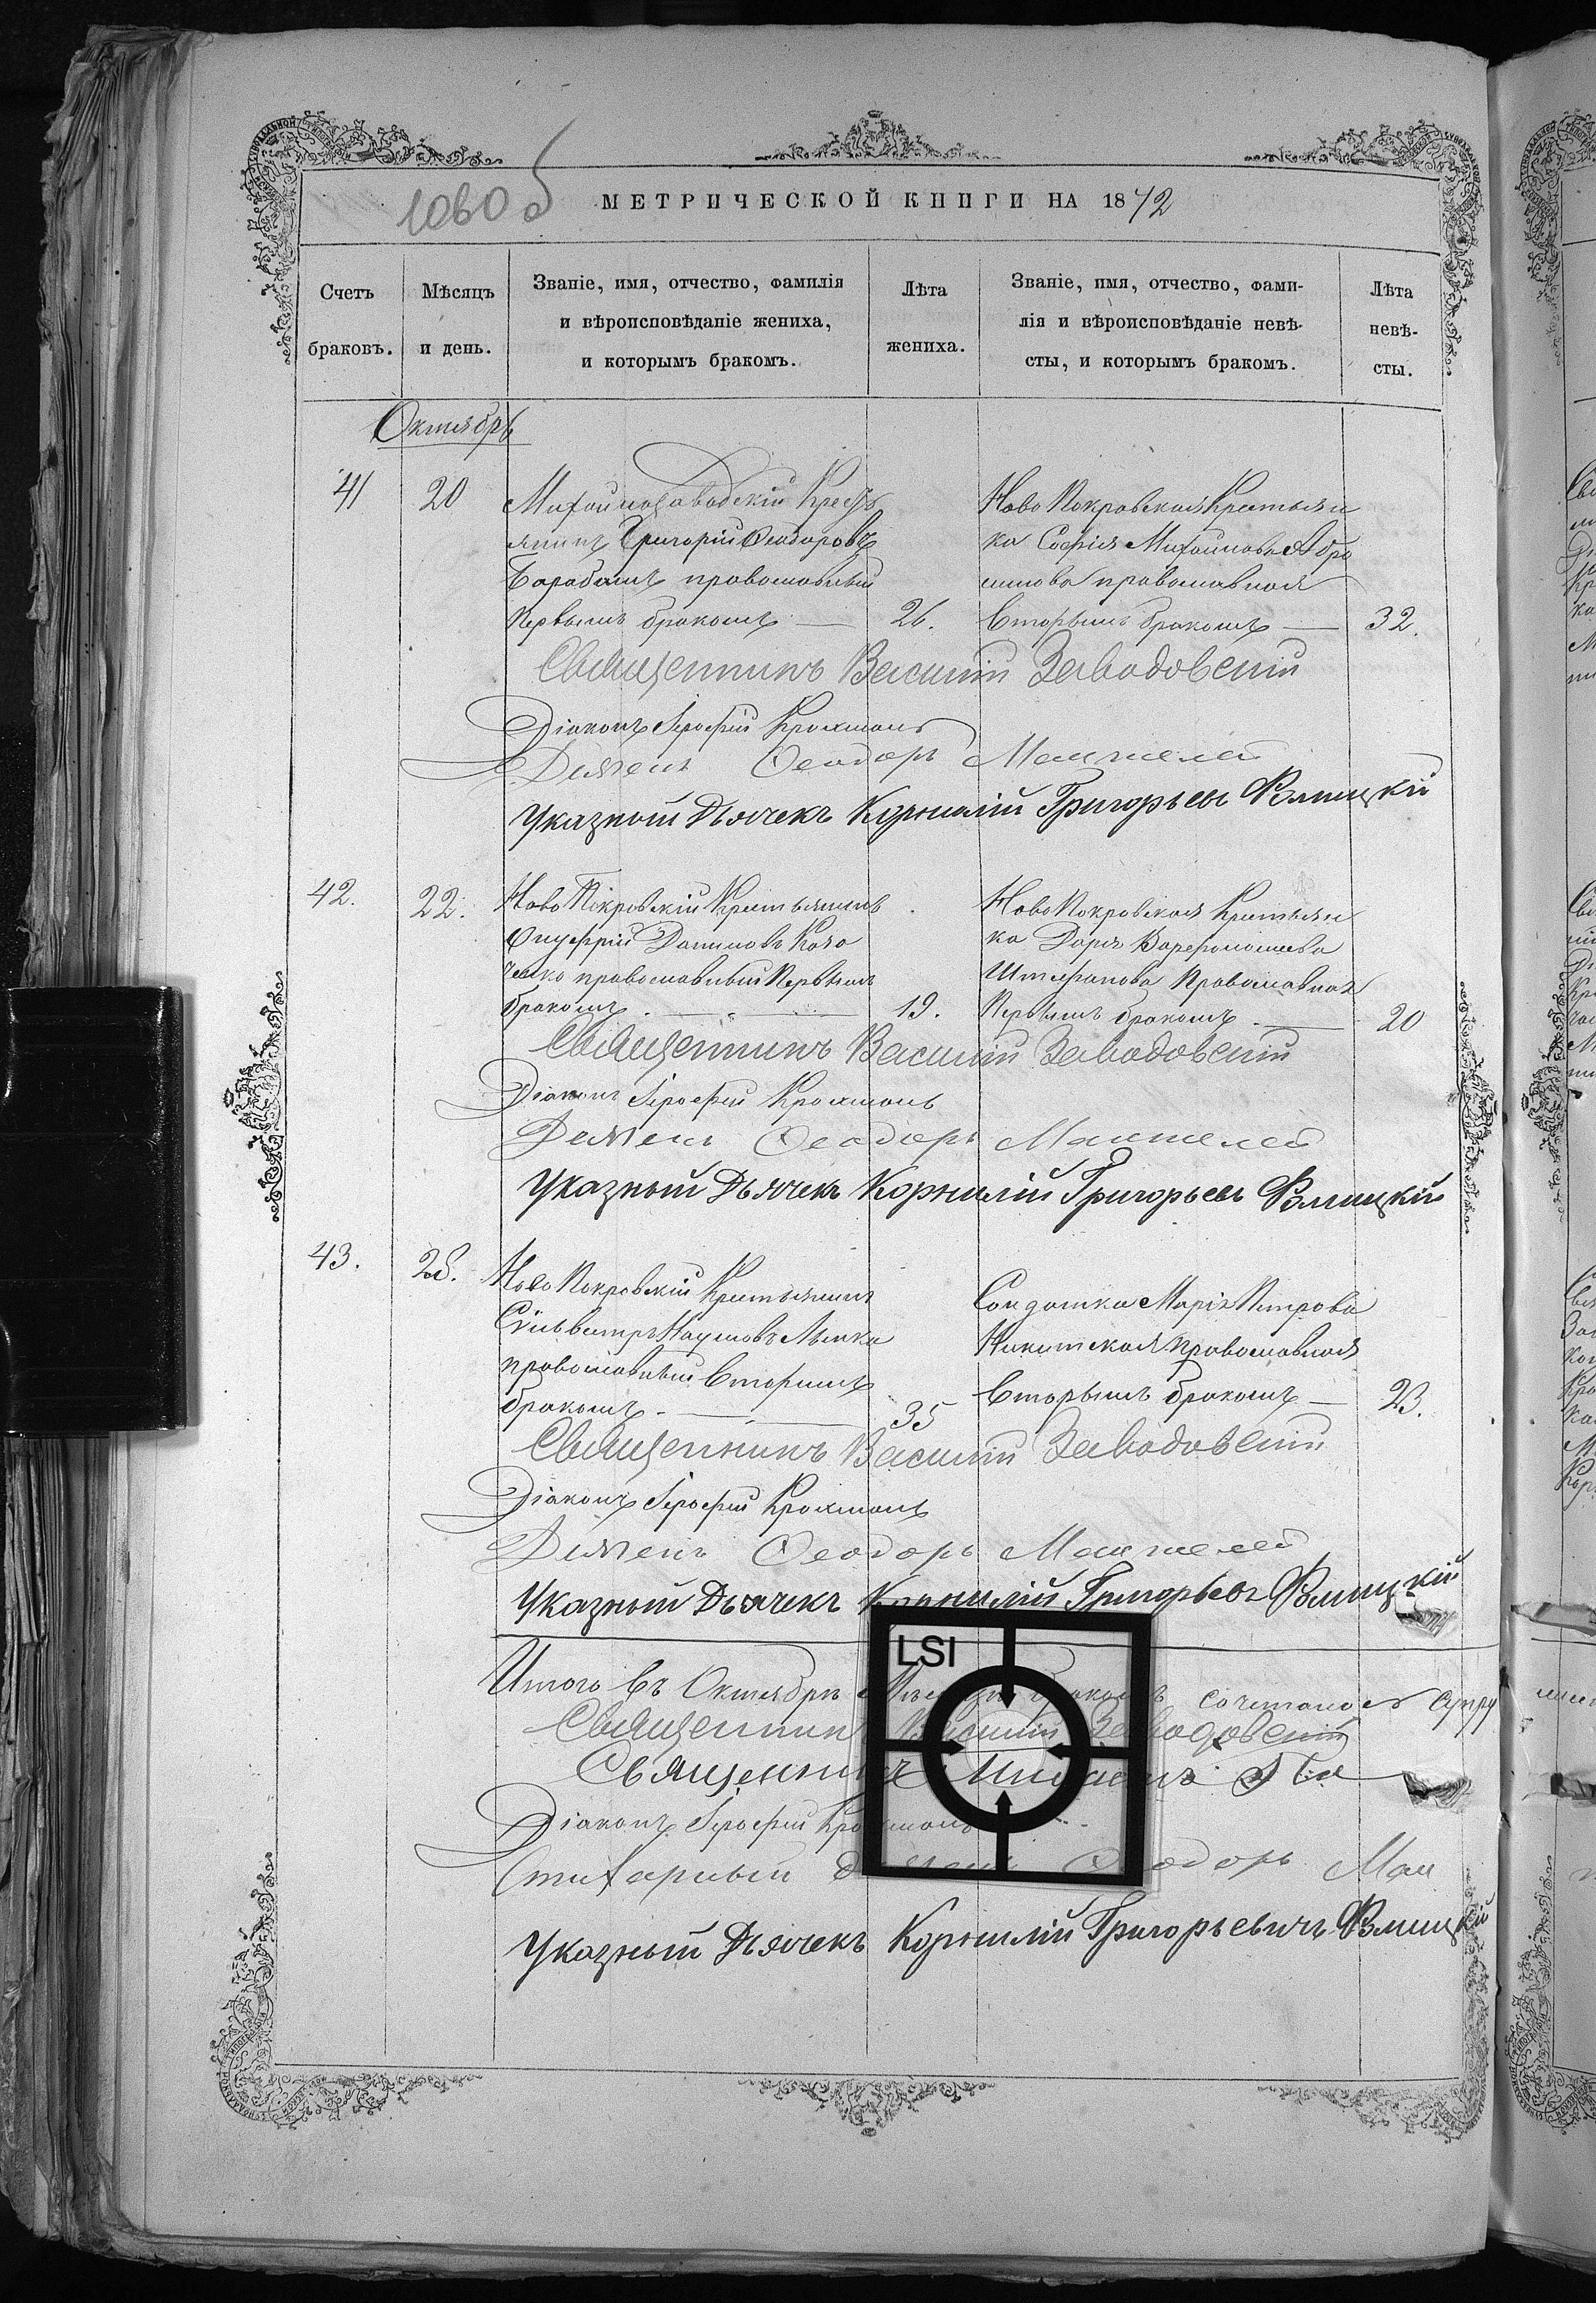 1060 б
МЕТРИЧЕСКОЙ КНИГИ НА 1872
Счетъ браковъ.
Мѣсяцъ и день.
Званіе, имя, отчество, фамилія
и вѣроисповѣданіе жениха,
и которымъ бракомъ.
Лѣта жениха.
Званіе, имя, отчество, фами-
лія и вѣроисповѣданіе невѣ-
сты, и которымъ бракомъ.
Лѣта невѣ-
сты.
Октябрь
41 20
Григорій Ѳеодоровъ
православный
Первымъ бракомъ 26.
Ново Покровская Крестьян
ка Софія Михайлова Абра
мова православная
Вторымъ бракомъ 32.
Священникъ Василій Заводовскій
Діаконъ Іероѳей Крохмаль
Дьячекъ Ѳеодоръ
Указный Дьячекъ Корнилій Григорьевъ
42. 22.
Ново Покровскій Крестьянинъ
Онуфрій Даниловъ
православный Первымъ
бракомъ 19.
Ново Покровская Крестьян
ка Дарія Варфоломеева
Штефанова Православная
Первымъ бракомъ 20
Священникъ Василій Заводовскій
Діаконъ Іероѳей Крохмаль
Дьячекъ Ѳеодоръ
Указный Дьячекъ Корнилій Григорьевъ
43. 25.
Ново Покровскій Крестьянинъ
Сильвестръ Наумовъ
православный Вторымъ
бракомъ 35
Солдатка Марія Петрова
Никитская православная
Вторымъ бракомъ 23.
Священникъ Василій Заводовскій
Діаконъ Іероѳей Крохмаль
Дьячекъ Ѳеодоръ
Указный Дьячекъ Корнилій Григорьевъ
LSI
Итого въ Октябрѣ Мѣсяцѣ бракомъ сочеталось супру
Священникъ Василій Заводовскій
Священникъ
Діаконъ Іероѳей Крохмаль
Стихарный Дьячекъ Ѳеодоръ
Указный Дьячекъ Корнилій Григорьевичъ